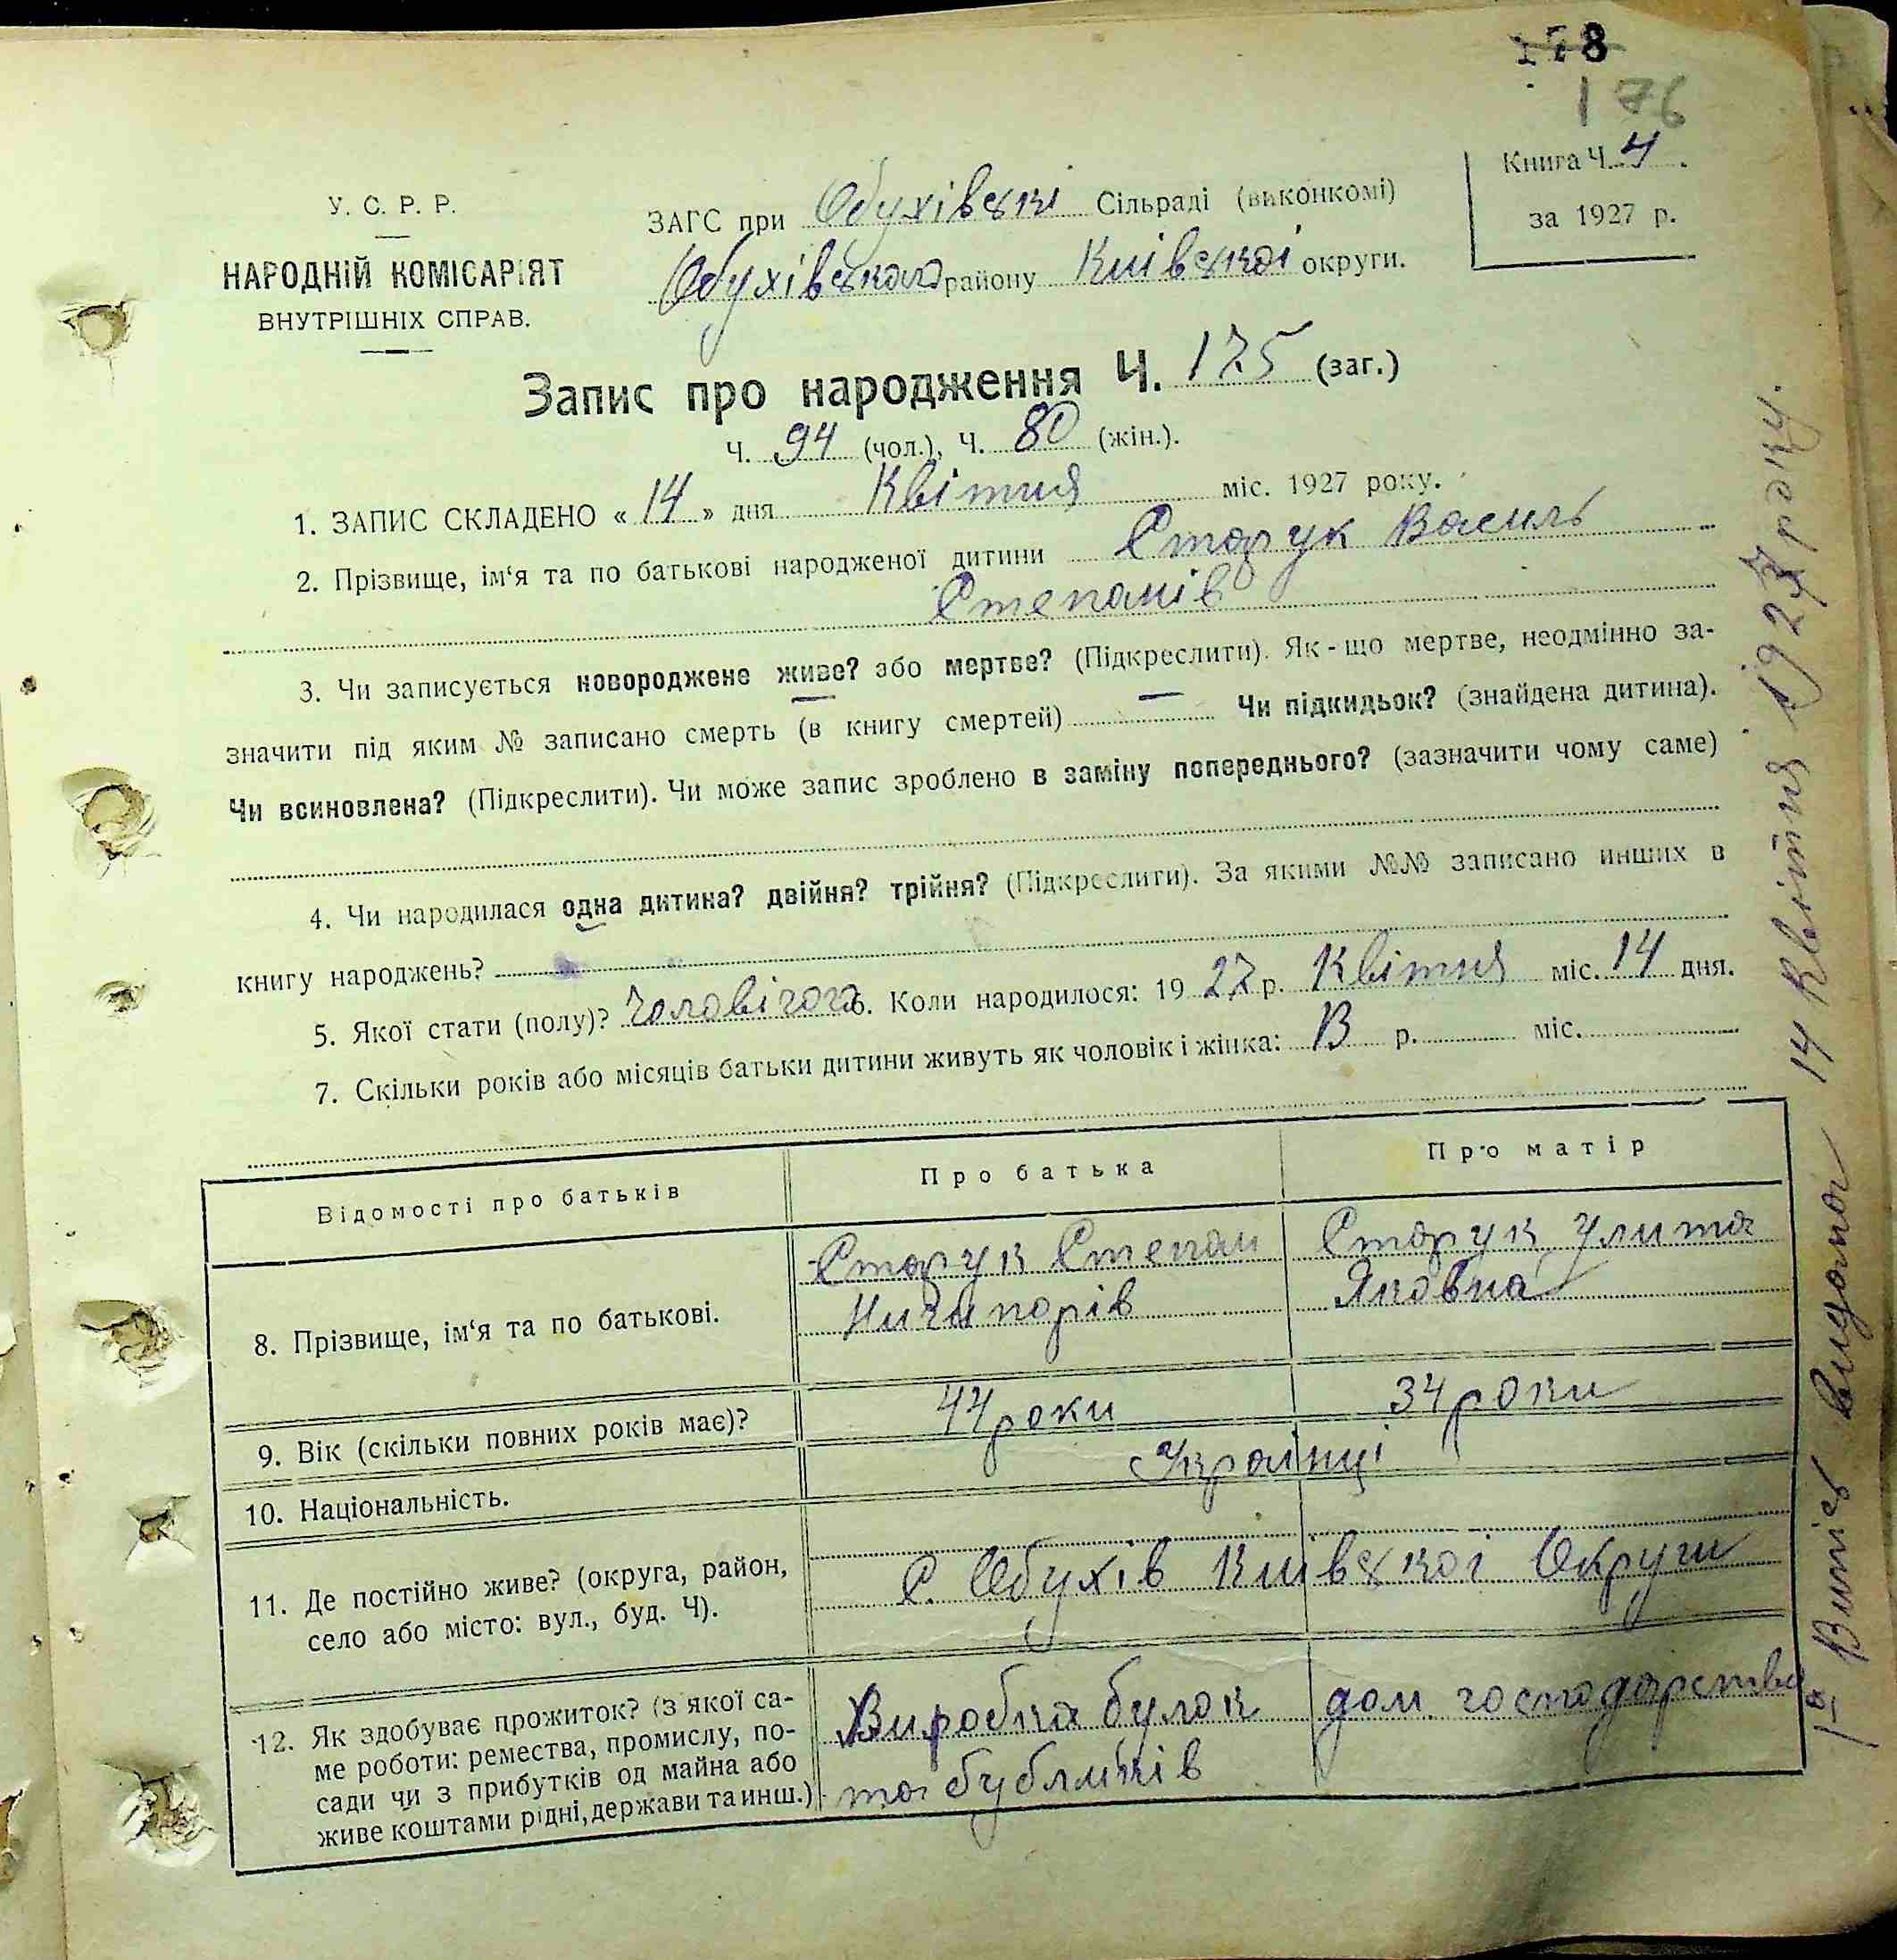 178
176
Книга Ч. 4.
за 1927 р.
У. С. Р. Р.
НАРОДНІЙ КОМІСАРІЯТ
ВНУТРІШНІХ СПРАВ.
ЗАГС при Обухівські Сільраді (виконкомі)
Обухівського району Київської округи.
Запис про народження Ч. 175 (заг.)
Ч. 94 (чол.), Ч. 80 (жін.).
1. ЗАПИС СКЛАДЕНО « 14 » дня Квітня міс. 1927 року.
2. Прізвище, ім‘я та по батькові народженої дитини Старук Василь
Степанів
3. Чи записується новороджене живе? або мертве? (Підкреслити). Як-що мертве, неодмінно за-
значити під яким № записано смерть (в книгу смертей) — Чи підкидьок? (знайдена дитина).
Чи всиновлена? (Підкреслити). Чи може запис зроблено в заміну попереднього? (зазначити чому саме)
4. Чи народилася одна дитина? двійня? трійня? (Підкреслити). За якими №№ записано инших в
книгу народжень?
5. Якої стати (полу)? Чоловічого 6. Коли народилося: 19 27 р. Квітня міс. 14 дня.
7. Скільки років або місяців батьки дитини живуть як чоловік і жінка: 13 р. міс.
Відомості про батьків Про батька Про матір
8. Прізвище, ім‘я та по батькові.
Старук Степан
Ничипорів
Старук Улита
Яковна
9. Вік (скільки повних років має)? 44 роки 34 роки
10. Національність. Українці
11. Де постійно живе? (округа, район,
село або місто: вул., буд. Ч).
С. Обухів Київської Округи
12. Як здобуває прожиток? (з якої са-
ме роботи: ремества, промислу, по-
сади чи з прибутків од майна або
живе коштами рідні, держави та инш.)
Виробка булок
та бубликів
дом. господарство
Випись видана 14 Квітня 1927 року.